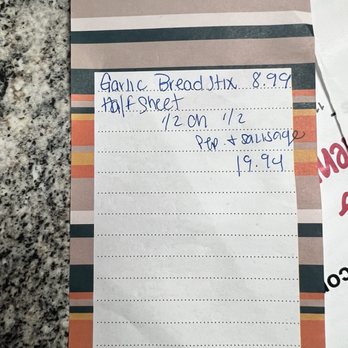 Garlic Breadstix 8.99
Half Sheet
1/2 Ch 1/2
Pep + sausage
19.94